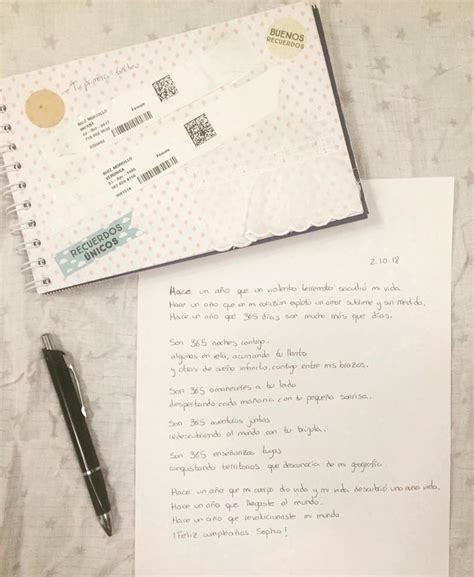 BUENOS
RECUERDOS
Tu primera
RUIZ MORCILLO
Female
RUIZ MORCILLO
VERONICA
Female
RECUERDOS
ÚNICOS
2.10.18
Hace un año que un violento terremoto sacudió mi vida.
Hace un año que en mi corazón explotó un amor sublime y sin medida.
Hace un año que 365 días son mucho más que días.
Son 365 noches contigo.
algunas en vela, acunando tu llanto
y otras de sueño infinito, contigo entre mis brazos.
Son 365 amaneceres a tu lado
despertando cada mañana con tu pequeña sonrisa.
Son 365 aventuras juntas
redescubriendo el mundo con tu brújula.
Son 365 enseñanzas tuyas
conquistando territorios que desconocía de mi geografía
Hace un año que mi cuerpo dio vida y mi vida descubrió una nueva vida.
Hace un año que llegaste al mundo.
Hace un año que revolucionaste mi mundo
¡Feliz cumpleaños Sophia!